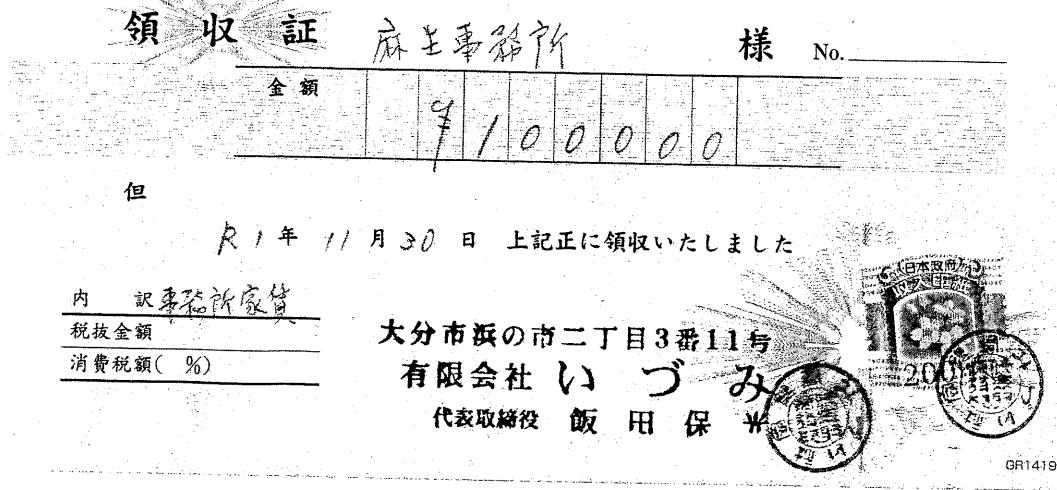 領収証 麻生事務所 様 No.
金額 ¥100000
但
R1年11月30日 上記正に領収いたしました
内訳 事務所家賃
税抜金額
消費税額( %)
大分市浜の市二丁目3番11号
有限会社 いづみ
代表取締役 飯田保
日本政府
200
GR1419